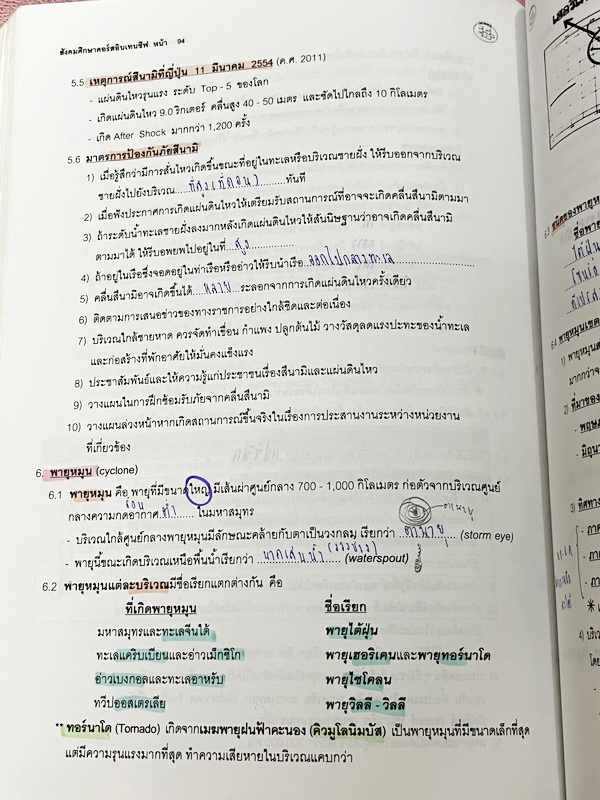 สังคมศึกษาคอร์สอินเทนซีฟ หน้า 94
5.5 เหตุการณ์สึนามิที่ญี่ปุ่น 11 มีนาคม 2554 (ค.ศ. 2011)
- แผ่นดินไหวรุนแรง ระดับ Top - 5 ของโลก
- เกิดแผ่นดินไหว 9.0 ริกเตอร์ คลื่นสูง 40 - 50 เมตร และซัดไปไกลถึง 10 กิโลเมตร
- เกิด After Shock มากกว่า 1,200 ครั้ง
5.6 มาตรการป้องกันภัยสึนามิ
1) เมื่อรู้สึกว่ามีการสั่นไหวเกิดขึ้นขณะที่อยู่ในทะเลหรือบริเวณชายฝั่ง ให้รีบออกจากบริเวณ
ชายฝั่งไปยังบริเวณ.....ที่สูง(ที่ดอน).........ทันที
2) เมื่อฟังประกาศการเกิดแผ่นดินไหวให้เตรียมรับสถานการณ์ที่อาจจะเกิดคลื่นสึนามิตามมา
3) ถ้าระดับน้ำทะเลชายฝั่งลงมากหลังเกิดแผ่นดินไหวให้สันนิษฐานว่าอาจเกิดคลื่นสึนามิ
ตามมาได้ ให้รีบอพยพไปอยู่ในที่...สูง..............
4) ถ้าอยู่ในเรือซึ่งจอดอยู่ในท่าเรือหรืออ่าวให้รีบนำเรือ..ออกไปกลางทะเล........................
5) คลื่นสึนามิอาจเกิดขึ้นได้....หลาย....ระลอกจากการเกิดแผ่นดินไหวครั้งเดียว
6) ติดตามการเสนอข่าวของทางราชการอย่างใกล้ชิดและต่อเนื่อง
7) บริเวณใกล้ชายหาด ควรจัดทำเขื่อน กำแพง ปลูกต้นไม้ วางวัสดุลดแรงปะทะของน้ำทะเล
และก่อสร้างที่พักอาศัยให้มั่นคงแข็งแรง
8) ประชาสัมพันธ์และให้ความรู้แก่ประชาชนเรื่องสึนามิและแผ่นดินไหว
9) วางแผนในการฝึกซ้อมรับภัยจากคลื่นสึนามิ
10) วางแผนล่วงหน้าหากเกิดสถานการณ์ขึ้นจริงในเรื่องการประสานงานระหว่างหน่วยงาน
ที่เกี่ยวข้อง
6. พายุหมุน (cyclone)
6.1 พายุหมุน คือ พายุที่มีขนาดใหญ่ มีเส้นผ่าศูนย์กลาง 700 - 1,000 กิโลเมตร ก่อตัวจากบริเวณศูนย์
ร้อน
กลางความกดอากาศ.ต่ำ...... ในมหาสมุทร
ตาพายุ
- บริเวณใกล้ศูนย์กลางพายุหมุนมีลักษณะคล้ายกับตาเป็นวงกลม เรียกว่า ..ตาพายุ.... (storm eye)
- พายุนี้ขณะเกิดบริเวณเหนือพื้นน้ำเรียกว่า ....นาคเล่นน้ำ (งวงช้าง) (waterspout)
6.2 พายุหมุนแต่ละบริเวณมีชื่อเรียกแตกต่างกัน คือ
ที่เกิดพายุหมุน ชื่อเรียก
มหาสมุทรและทะเลจีนใต้ พายุไต้ฝุ่น
ทะเลแคริบเบียนและอ่าวเม็กซิโก พายุเฮอริเคนและพายุทอร์นาโด
อ่าวเบงกอลและทะเลอาหรับ พายุไซโคลน
ทวีปออสเตรเลีย พายุวิลลี - วิลลี
** ทอร์นาโด (Tornado) เกิดจากเมฆพายุฝนฟ้าคะนอง (คิวมูโลนิมบัส) เป็นพายุหมุนที่มีขนาดเล็กที่สุด
แต่มีความรุนแรงมากที่สุด ทำความเสียหายในบริเวณแคบกว่า
6.3 ชนิดของพายุหมุ
ชื่อพายุ
6.4 พายุหมุนเขต
1) พายุหมุน
มากกว่า
2) ที่มาของ
- พฤษภ
- มิถุน
3) ทิศทาง
4) บริเว
โดย